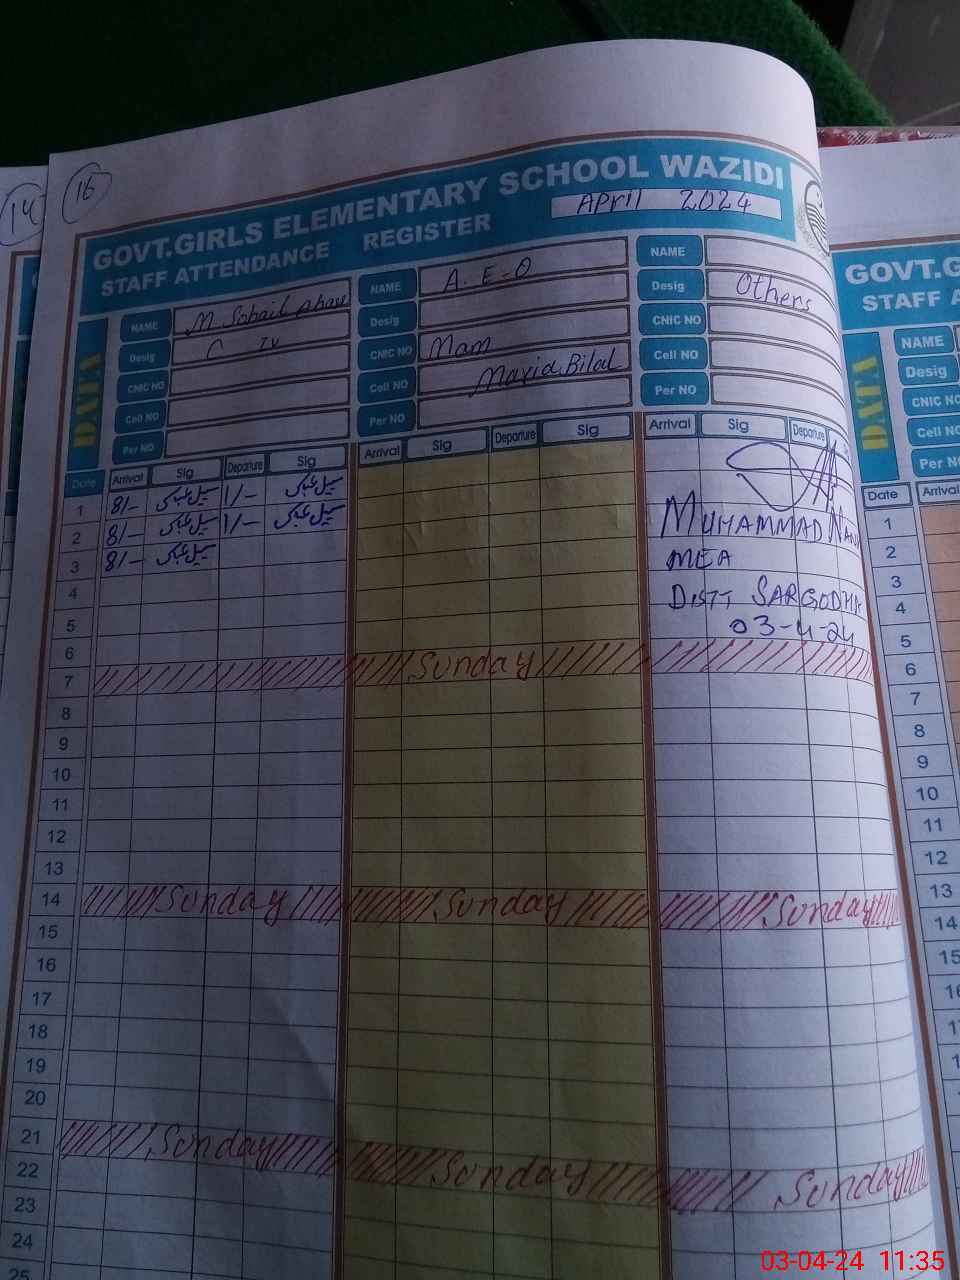 14
16
GOVT.GIRLS ELEMENTARY SCHOOL WAZIDI
STAFF ATTENDANCE REGISTER
April 2024
DATA
NAME M. Sohail
Desig C IV
CNIC NO
Cell NO
Per NO
NAME A. E-O
Desig
CNIC NO Mam
Cell NO Maria Bilal
Per NO
NAME
Desig Others
CNIC NO
Cell NO
Per NO
Date Arrival Sig Departure Sig Arrival Sig Departure Sig Arrival Sig Departure
1 8/- 1/-
2 8/- 1/-
3 8/-
MUHAMMAD
MEA
DISTT SARGODHA
03-4-24
4
5
6
7 Sunday
8
9
10
11
12
13
14 Sunday Sunday Sunday
15
16
17
18
19
20
21 Sunday Sunday Sunday
22
23
24
25
GOVT.G
STAFF A
DATA
NAME
Desig
CNIC NO
Cell NO
Per NO
Date Arrival
1
2
3
4
5
6
7
8
9
10
11
12
13
14
15
03-04-24 11:35